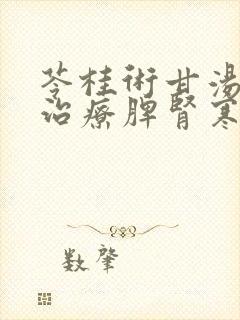 苓桂術甘湯
治療脾腎寒
数肇